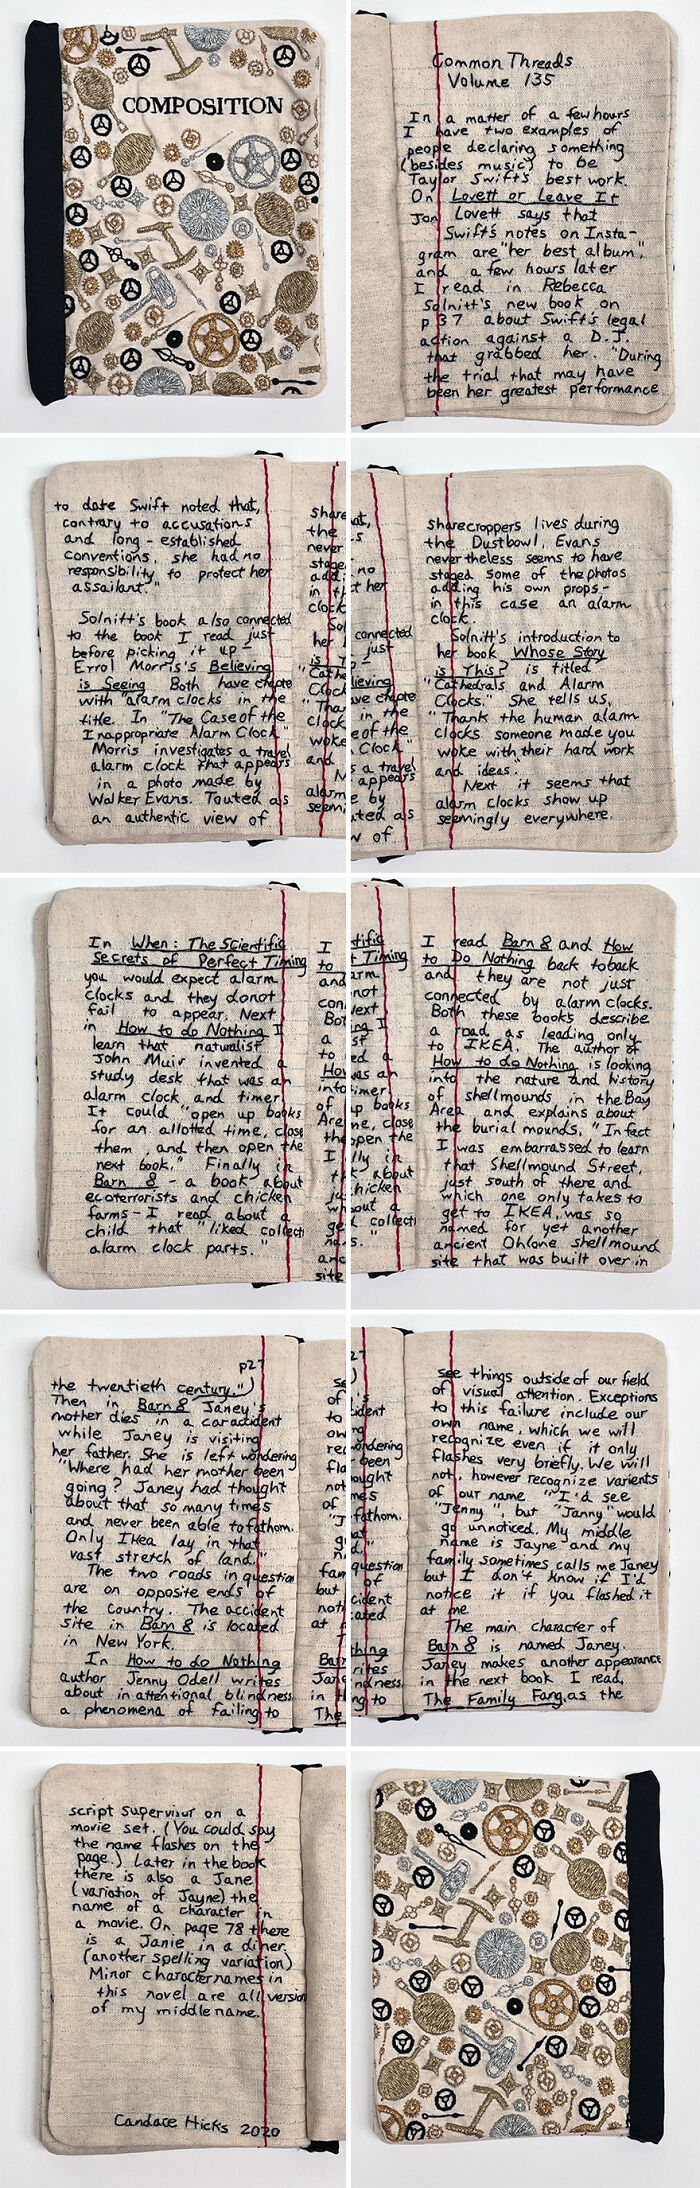 COMPOSITION
Common Threads
Volume 135
In a matter of a few hours
I have two examples of
people declaring something
(besides music) to be
Taylor Swift's best work.
On Lovett or Leave It
Jon Lovett says that
Swift's notes on Insta-
gram are "her best album",
and a few hours later
I read in Rebecca
Solnitt's new book on
p 37 about Swift's legal
action against a D.J.
that grabbed her. "During
the trial that may have
been her greatest performance
to date Swift noted that,
contrary to accusations
and long-established
conventions, she had no
responsibility to protect her
assailant."
Solnitt's book also connected
to the book I read just
before picking it up -
Errol Morris's Believing
is Seeing Both have chapte
with "alarm clocks in the
title. In "The Case of the
Inappropriate Alarm Clock"
Morris investigates a travel
alarm clock that appears
in a photo made by
Walker Evans. Touted as
an authentic view of
sharecroppers lives during
the Dustbowl, Evans
nevertheless seems to have
staged some of the photos
adding his own props-
in this case an alarm
clock.
Solnitt's introduction to
her book Whose Story
is This? is titled
"Cathedrals and Alarm
Clocks." She tells us,
"Thank the human alarm
clocks someone made you
woke with their hard work
and ideas."
Next it seems that
alarm clocks show up
seemingly everywhere.
In When: The Scientific
Secrets of Perfect Timing
you would expect alarm
clocks and they do not
fail to appear. Next
in How to do Nothing I
learn that naturalist
John Muir invented a
study desk that was an
alarm clock and timer.
It could "open up books
for an allotted time, close
them, and then open the
next book." Finally in
Barn 8 - a book about
ecoterrorists and chicken
farms - I read about a
child that "liked collecti
alarm clock parts."
I read Barn 8 and How
to Do Nothing back to back
and they are not just
connected by alarm clocks.
Both these books describe
a road as leading only
to IKEA. The author of
How to do Nothing is looking
into the nature and history
of shellmounds in the Bay
Area and explains about
the burial mounds, "In fact
I was embarrassed to learn
that Shellmound Street,
just south of there and
which one only takes to
get to IKEA, was so
named for yet another
ancient Ohlone shellmound
site that was built over in
p27
the twentieth century.")
Then in Barn 8 Janey's
mother dies in a car accident
while Janey is visiting
her father. She is left wondering
"Where had her mother been
going? Janey had thought
about that so many times
and never been able to fathom.
Only Ikea lay in that
vast stretch of land."
The two roads in question
are on opposite ends of
the country. The accident
site in Barn 8 is located
in New York.
In How to do Nothing
author Jenny Odell writes
about inattentional blindness
a phenomena of failing to
see things outside of our field
of visual attention. Exceptions
to this failure include our
own name, which we will
recognize even if it only
flashes very briefly. We will
not, however recognize varients
of our name "I'd see
"Jenny", but "Janny" would
go unnoticed. My middle
name is Jayne and my
family sometimes calls me Janey
but I don't know if I'd
notice it if you flashed it
at me.
The main character of
Barn 8 is named Janey.
Janey makes another appearance
in the next book I read,
The Family Fang, as the
script supervisor on a
movie set. (You could say
the name flashes on the
page.) Later in the book
there is also a Jane
(variation of Jayne) the
name of a character in
a movie. On page 78 there
is a Janie in a diner.
(another spelling variation)
Minor character names in
this novel are all version
of my middle name.
Candace Hicks 2020